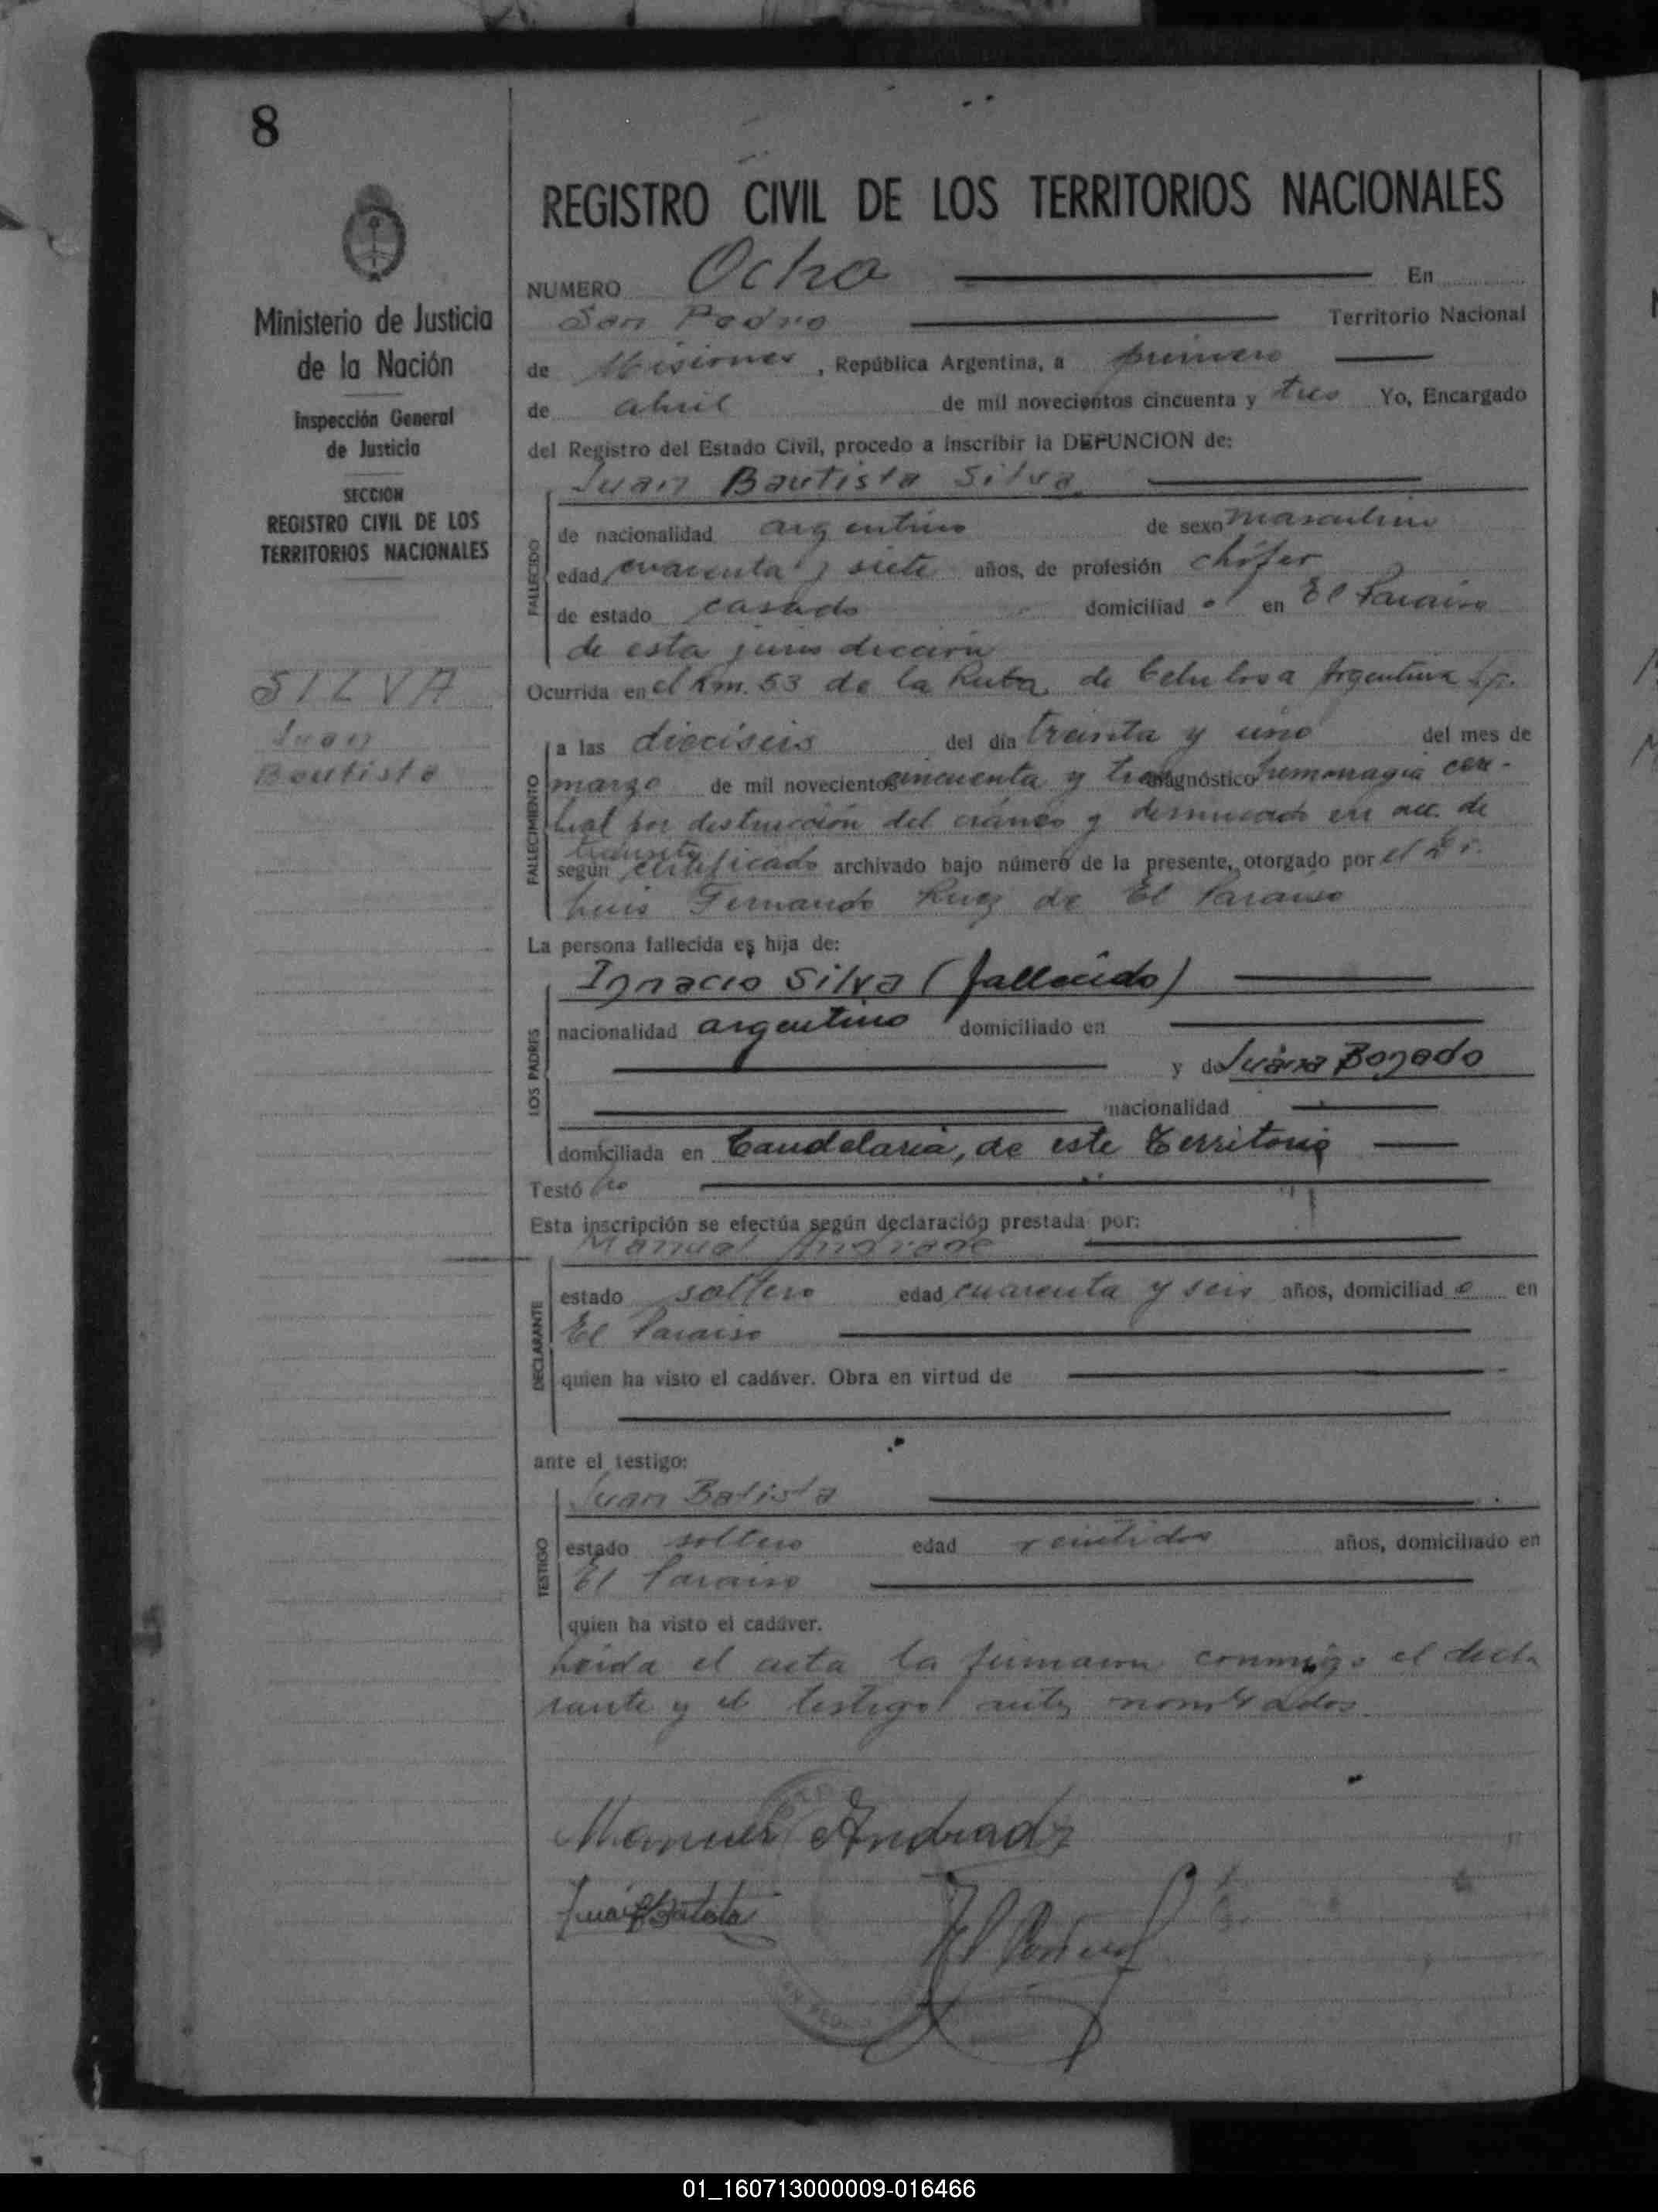 8
Ministerio de Justicia
de la Nación
Inspección General
de Justicia
SECCION
REGISTRO CIVIL DE LOS
TERRITORIOS NACIONALES
SILVA
Juan
Bautista
REGISTRO CIVIL DE LOS TERRITORIOS NACIONALES
NUMERO Ocho En
San Pedro Territorio Nacional
de Misiones, República Argentina, a primero
de abril de mil novecientos cincuenta y tres Yo, Encargado
del Registro del Estado Civil, procedo a inscribir la DEFUNCION de:
Juan Bautista Silva
FALLECIDO
de nacionalidad argentino de sexo masculino
edad cuarenta y siete años, de profesión chófer
de estado casado domiciliado en El Paraiso
de esta jurisdicción
Ocurrida en el Km. 53 de la Ruta de Celulosa Argentina
FALLECIMIENTO
a las dieciseis del día treinta y uno del mes de
marzo de mil novecientos cincuenta y tres diagnóstico hemorragia cere-
bral por destrucción del cráneo y desnucado en acc. de
transito
según certificado archivado bajo número de la presente, otorgado por el Dr.
Luis Fernando Ruiz de El Paraiso
La persona fallecida es hija de:
LOS PADRES
Ignacio Silva (fallecido)
nacionalidad argentino domiciliado en
y de Juana Bogado
nacionalidad
domiciliada en Candelaria, de este Territorio
Testó no
Esta inscripción se efectúa según declaración prestada por:
Manuel Andrade
DECLARANTE
estado soltero edad cuarenta y seis años, domiciliado en
El Paraiso
quien ha visto el cadáver. Obra en virtud de
ante el testigo:
Juan Batista
TESTIGO
estado soltero edad veintidos años, domiciliado en
El Paraiso
quien ha visto el cadáver.
Leida el acta la firmaron conmigo el decla
rante y el testigo antes nombrados
Manuel Andradz
Juan Batista
01_160713000009-016466